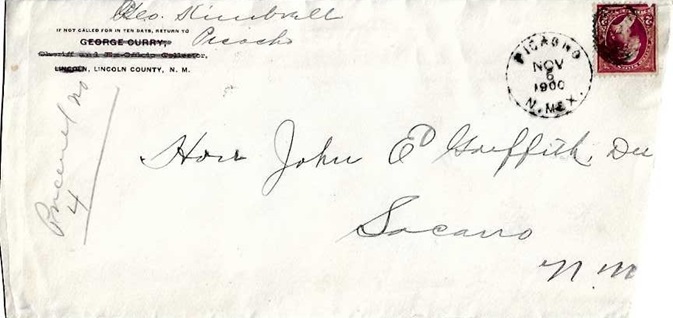 Geo. Kimbrell
IF NOT CALLED FOR IN TEN DAYS, RETURN TO
GEORGE CURRY,
Picacho
Sheriff and Ex-Officio Collector,
LINCOLN, LINCOLN COUNTY, N. M.
PICACHO
NOV
6
1900
N. MEX.
Precinct No
4
Hon John E Griffith,
Socorro
N. M